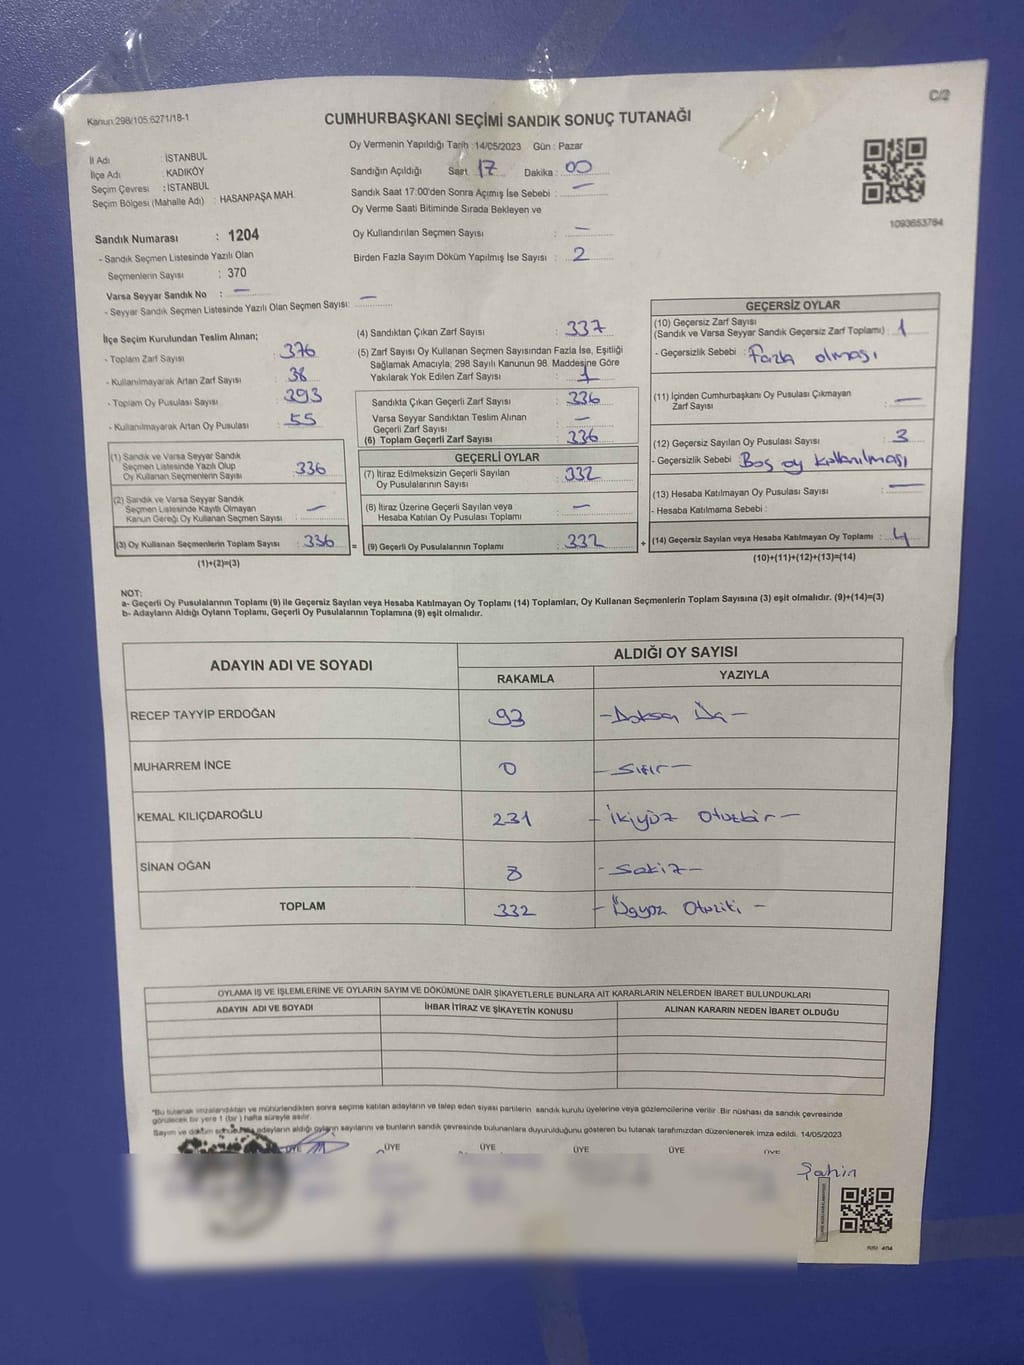 Kanun:298/105:6271/18-1
C/2
CUMHURBAŞKANI SEÇİMİ SANDIK SONUÇ TUTANAĞI
İl Adı : İSTANBUL
İlçe Adı : KADIKÖY
Seçim Çevresi : İSTANBUL
Seçim Bölgesi (Mahalle Adı) : HASANPAŞA MAH.
Sandık Numarası : 1204
- Sandık Seçmen Listesinde Yazılı Olan
Seçmenlerin Sayısı : 370
Varsa Seyyar Sandık No : —
- Seyyar Sandık Seçmen Listesinde Yazılı Olan Seçmen Sayısı: —
Oy Vermenin Yapıldığı Tarih : 14/05/2023 Gün : Pazar
Sandığın Açıldığı Saat 17 Dakika : 00
Sandık Saat 17:00'den Sonra Açılmış İse Sebebi : —
Oy Verme Saati Bitiminde Sırada Bekleyen ve
Oy Kullandırılan Seçmen Sayısı : —
Birden Fazla Sayım Döküm Yapılmış İse Sayısı : 2
1093653764
İlçe Seçim Kurulundan Teslim Alınan;
- Toplam Zarf Sayısı : 376
- Kullanılmayarak Artan Zarf Sayısı : 38
- Toplam Oy Pusulası Sayısı : 393
- Kullanılmayarak Artan Oy Pusulası : 55
(1) Sandık ve Varsa Seyyar Sandık
Seçmen Listesinde Yazılı Olup
Oy Kullanan Seçmenlerin Sayısı : 336
(2) Sandık ve Varsa Seyyar Sandık
Seçmen Listesinde Kayıtlı Olmayan
Kanun Gereği Oy Kullanan Seçmen Sayısı : —
(3) Oy Kullanan Seçmenlerin Toplam Sayısı : 336
(1)+(2)=(3)
(4) Sandıktan Çıkan Zarf Sayısı : 337
(5) Zarf Sayısı Oy Kullanan Seçmen Sayısından Fazla İse, Eşitliği
Sağlamak Amacıyla; 298 Sayılı Kanunun 98. Maddesine Göre
Yakılarak Yok Edilen Zarf Sayısı : 1
Sandıkta Çıkan Geçerli Zarf Sayısı : 336
Varsa Seyyar Sandıktan Teslim Alınan
Geçerli Zarf Sayısı : —
(6) Toplam Geçerli Zarf Sayısı : 336
GEÇERLİ OYLAR
(7) İtiraz Edilmeksizin Geçerli Sayılan
Oy Pusulalarının Sayısı : 332
(8) İtiraz Üzerine Geçerli Sayılan veya
Hesaba Katılan Oy Pusulası Toplamı : —
= (9) Geçerli Oy Pusulalarının Toplamı : 332
GEÇERSİZ OYLAR
(10) Geçersiz Zarf Sayısı
(Sandık ve Varsa Seyyar Sandık Geçersiz Zarf Toplamı) : 1
- Geçersizlik Sebebi : Fazla olması
(11) İçinden Cumhurbaşkanı Oy Pusulası Çıkmayan
Zarf Sayısı : —
(12) Geçersiz Sayılan Oy Pusulası Sayısı : 3
- Geçersizlik Sebebi Boş oy kullanılması
(13) Hesaba Katılmayan Oy Pusulası Sayısı : —
- Hesaba Katılmama Sebebi :
+ (14) Geçersiz Sayılan veya Hesaba Katılmayan Oy Toplamı : 4
(10)+(11)+(12)+(13)=(14)
NOT:
a- Geçerli Oy Pusulalarının Toplamı (9) ile Geçersiz Sayılan veya Hesaba Katılmayan Oy Toplamı (14) Toplamları, Oy Kullanan Seçmenlerin Toplam Sayısına (3) eşit olmalıdır. (9)+(14)=(3)
b- Adayların Aldığı Oyların Toplamı, Geçerli Oy Pusulalarının Toplamına (9) eşit olmalıdır.
ADAYIN ADI VE SOYADI ALDIĞI OY SAYISI
RAKAMLA YAZIYLA
RECEP TAYYİP ERDOĞAN 93 -Doksan Üç-
MUHARREM İNCE 0 -Sıfır-
KEMAL KILIÇDAROĞLU 231 -İkiyüz Otuzbir-
SİNAN OĞAN 8 -Sekiz-
TOPLAM 332 -Üçyüz Otuziki-
OYLAMA İŞ VE İŞLEMLERİNE VE OYLARIN SAYIM VE DÖKÜMÜNE DAİR ŞİKAYETLERLE BUNLARA AİT KARARLARIN NELERDEN İBARET BULUNDUKLARI
ADAYIN ADI VE SOYADI İHBAR İTİRAZ VE ŞİKAYETİN KONUSU ALINAN KARARIN NEDEN İBARET OLDUĞU
*Bu tutanak imzalandıktan ve mühürlendikten sonra seçime katılan adayların ve talep eden siyasi partilerin sandık kurulu üyelerine veya gözlemcilerine verilir. Bir nüshası da sandık çevresinde
görülecek bir yere 1 (bir) hafta süreyle asılır.
Sayım ve döküm adayların aldığı oyların sayılarını ve bunların sandık çevresinde bulunanlara duyurulduğunu gösteren bu tutanak tarafımızdan düzenlenerek imza edildi. 14/05/2023
ÜYE ÜYE ÜYE ÜYE ÜYE
Şahin